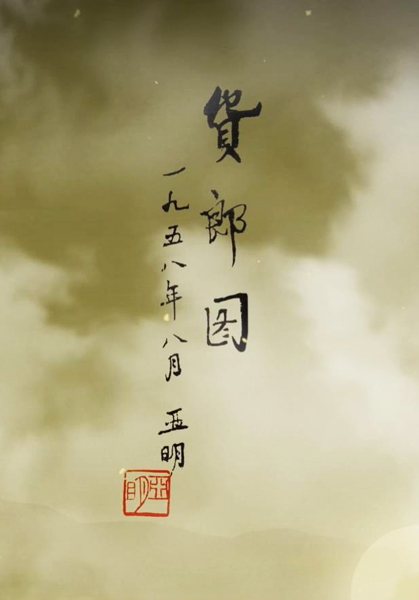 貨郎图
一九五八年八月 亚明
亚明